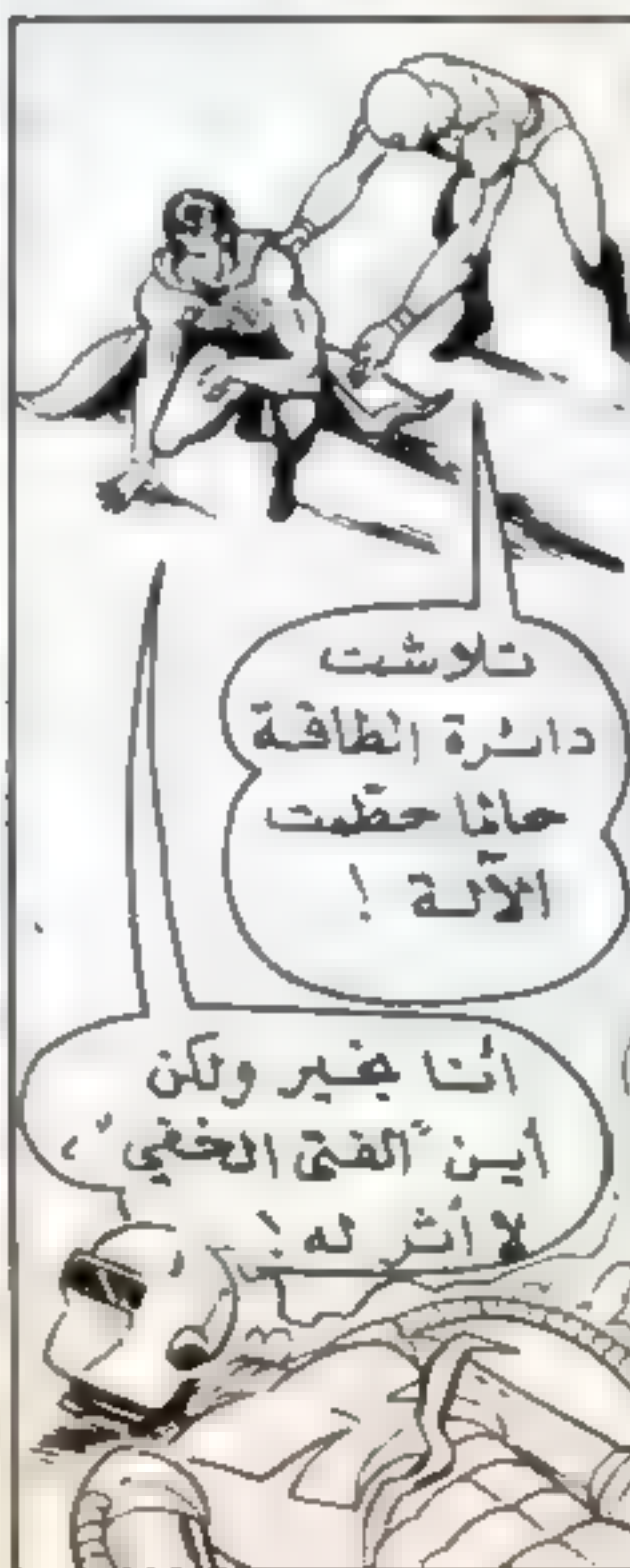 تلاشت
دائرة الطاقة
حالما حطّمت
الآلة !
أنا بخير ولكن
أين "الفتى الخفي"،
لا أثر له !